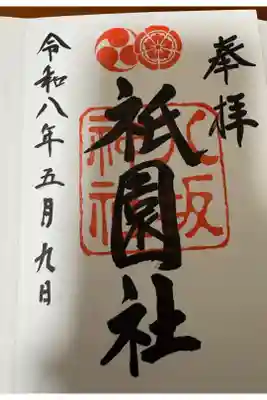 奉拝
八坂
神社
祇園社
令和八年五月九日